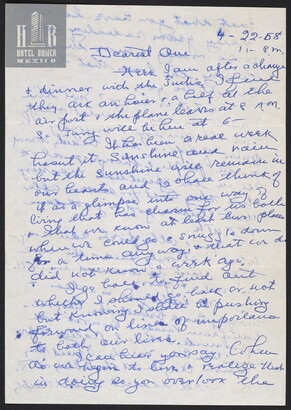 HR
HOTEL ROMER
MEXICO
4-22-58
11- P.M.
Dearest One.
Here I am after a change
& dinner with the I find
they ask an hour & a half at the
air port & the plane leaves at 8 A.M.
So Jimmy will be here at 6-
It has been a real week
hasn't it. Sunshine and rain
but the sunshine will remain in
our hearts and I shall think of
it as a glimpse into one way of
living that has charm for us both
& that we know at least two places
where we could go & snug to down
for a time any way, & that we
did not know a week ago.
I go back to find out
whether I should go back or not
but knowing I shall be pushing
forward on lines of importance
to both our lives.
I can hear you say, "When
are we going to live & realize that
in doing so you overlook the